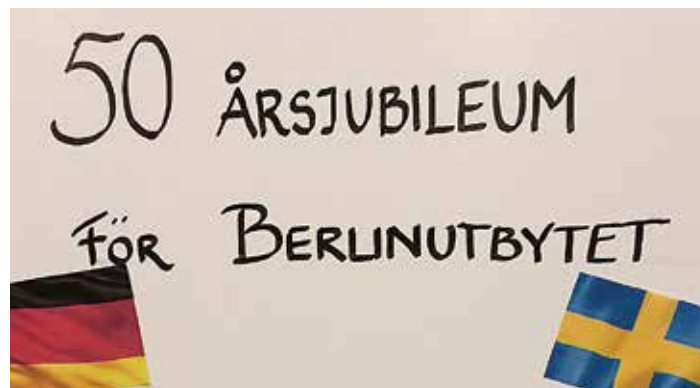 50 ÅRSJUBILEUM
FÖR BERLINUTBYTET